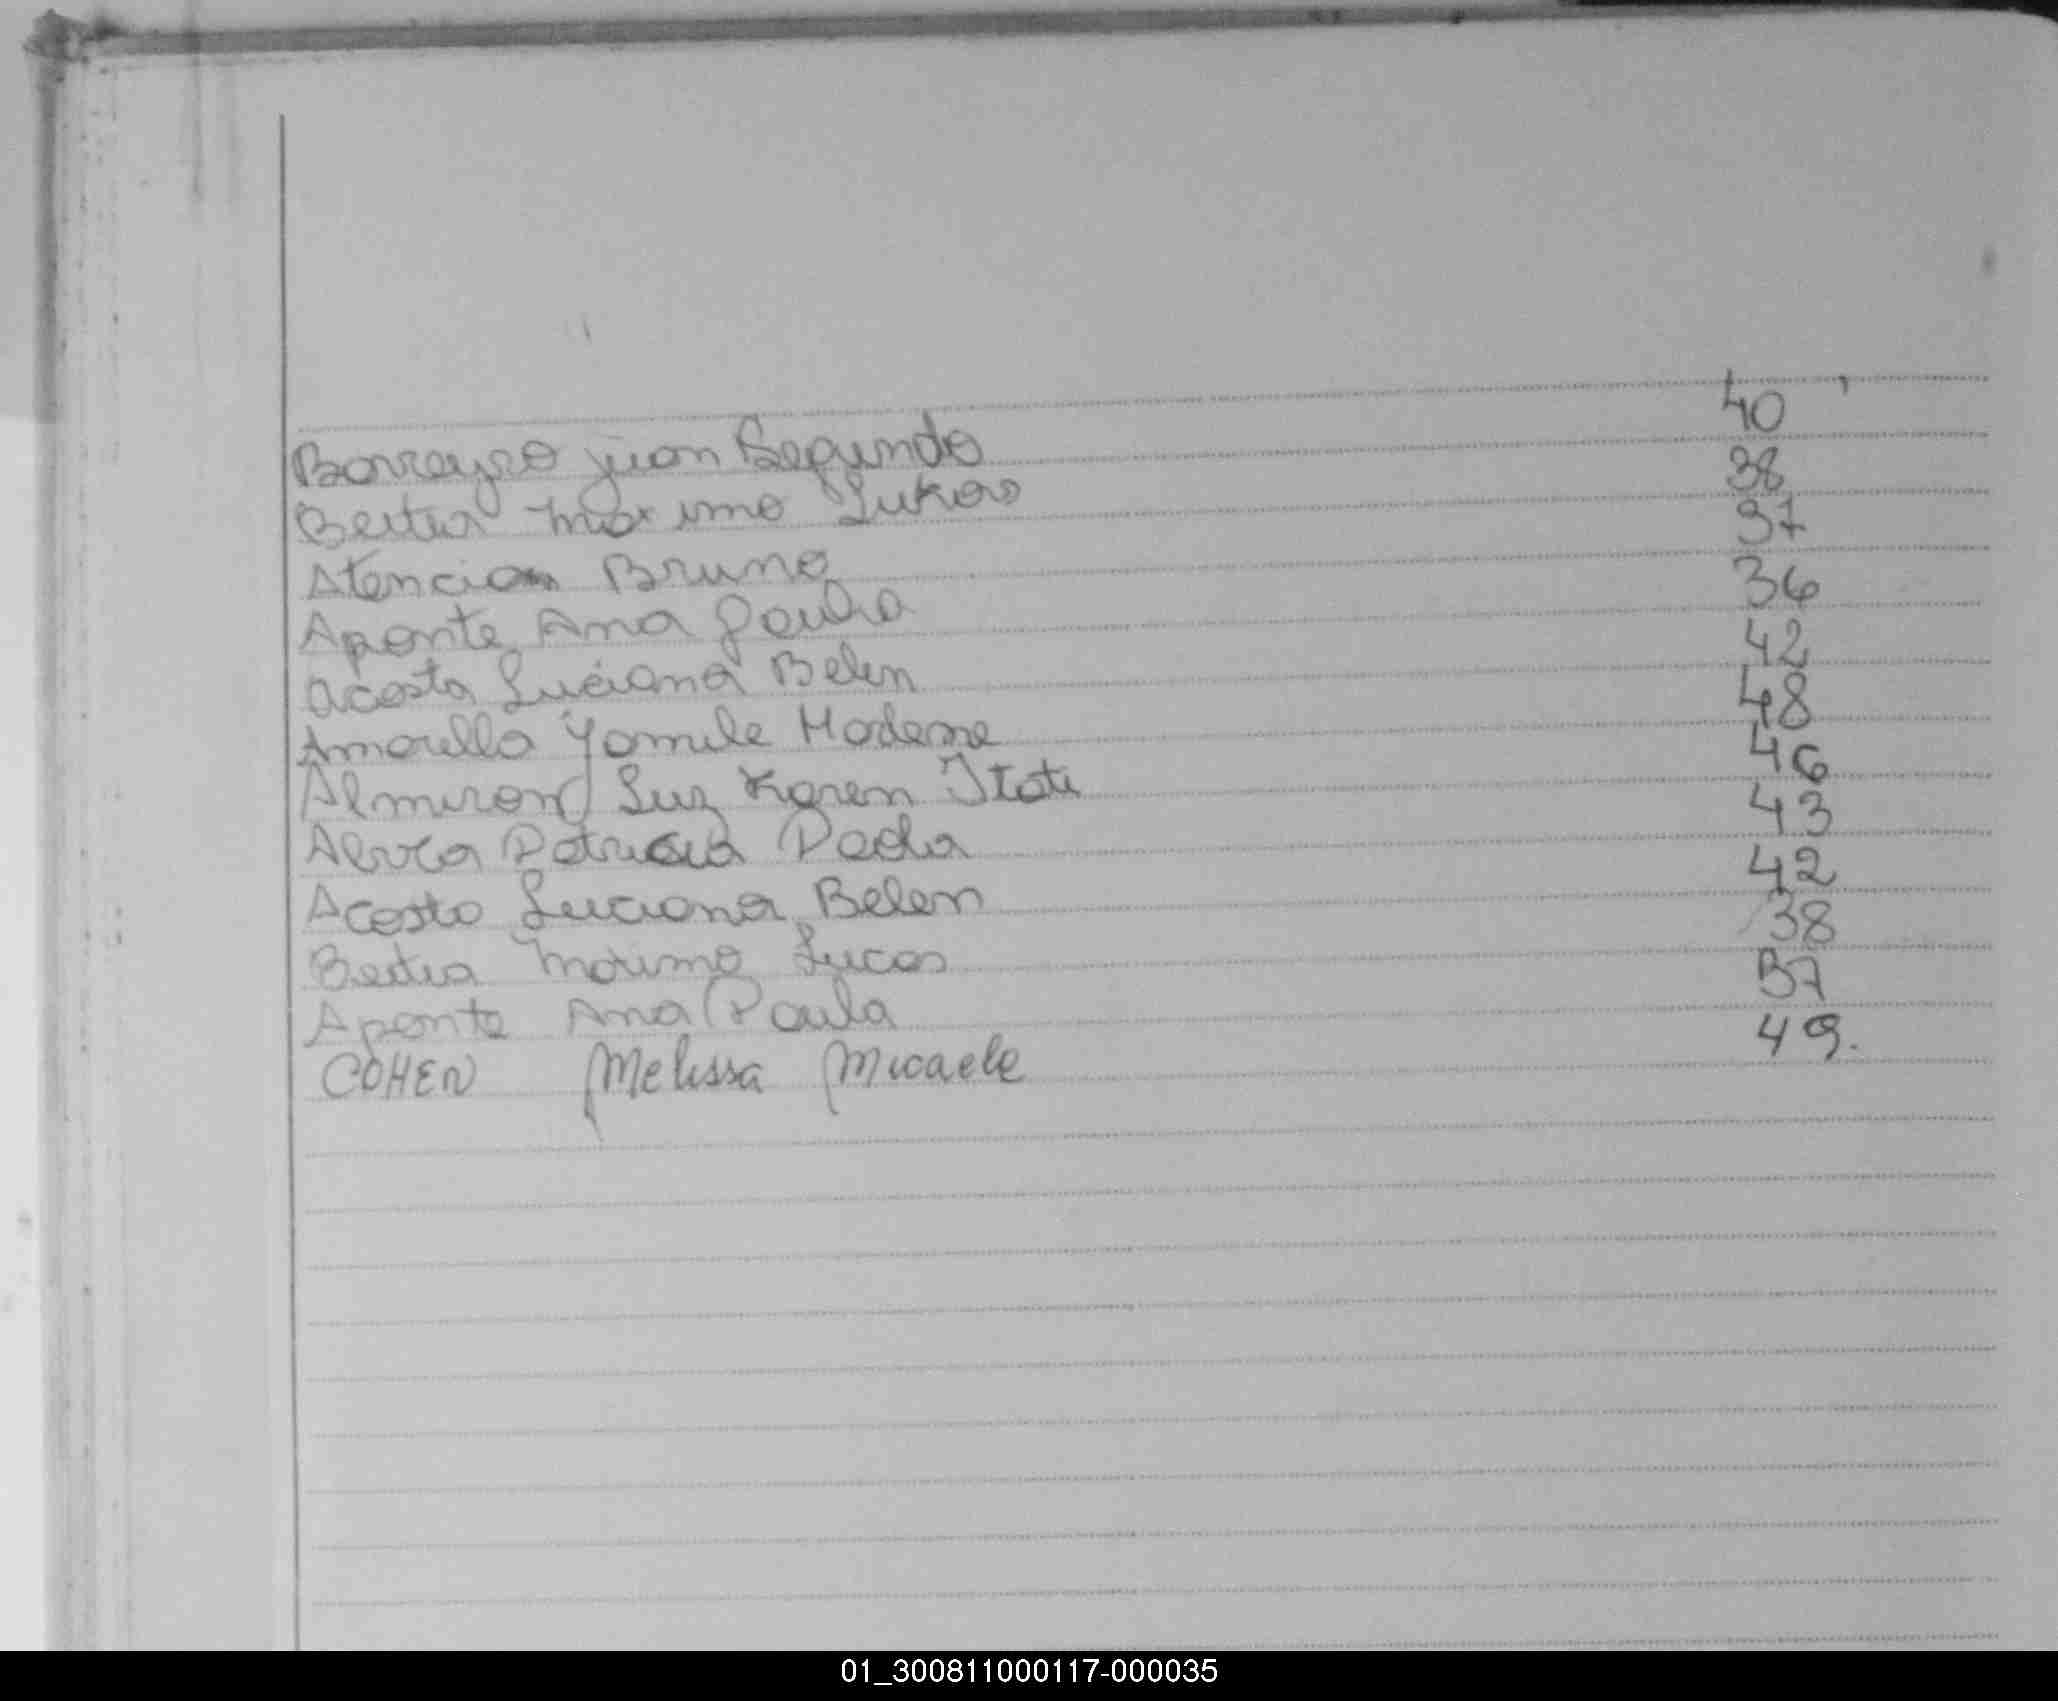 Borreyro juan Segundo 40
Bertia Maximo Lukas 38
Atencion Bruno 37
Aponte Ana Paula 36
Acosta Luciana Belen 42
Amarilla Yamile 48
Almiron Luz Karen Itati 46
Patricia 43
Acosta Luciana Belen 42
Bertia Maximo Lucas 38
Aponte Ana Paula 37
COHEN Melissa Micaela 49.
01_300811000117-000035